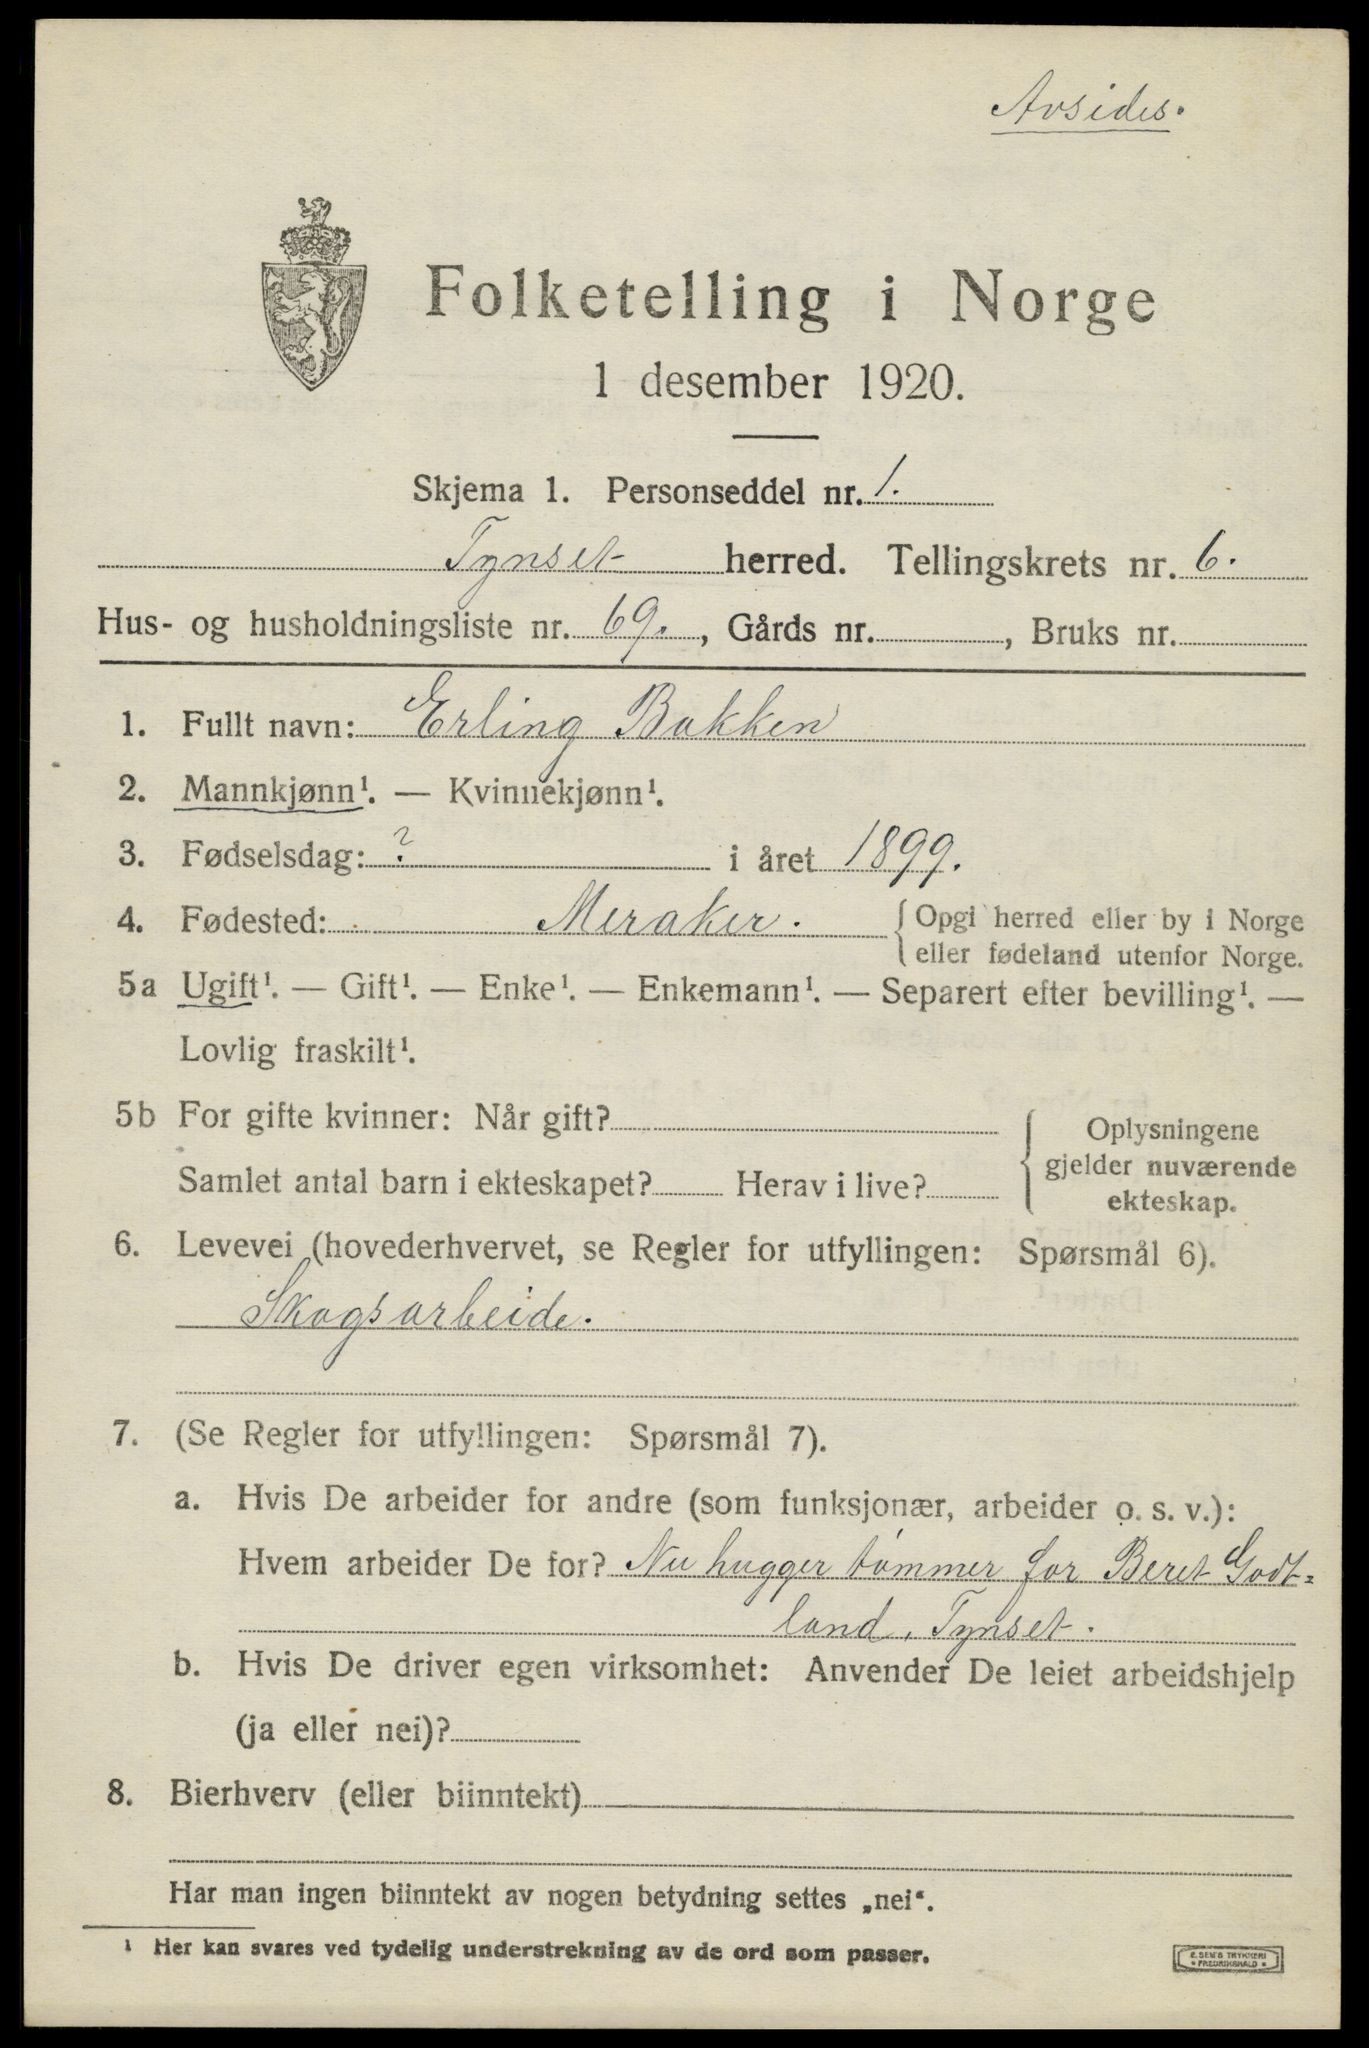 Avsides.
Folketelling i Norge
1 desember 1920.
Skjema 1. Personseddel nr. 1.
Tynset herred. Tellingskrets nr. 6.
Hus- og husholdningsliste nr. 69., Gårds nr. , Bruks nr.
1. Fullt navn: Erling Bakken
2. Mannkjønn¹. — Kvinnekjønn¹.
3. Fødselsdag: ? i året 1899.
4. Fødested: Meraker. { Opgi herred eller by i Norge
eller fødeland utenfor Norge.
5a Ugift¹. — Gift¹. — Enke¹. — Enkemann¹. — Separert efter bevilling¹. —
Lovlig fraskilt¹.
5b For gifte kvinner: Når gift? { Oplysningene
gjelder nuværende
Samlet antal barn i ekteskapet? Herav i live?
ekteskap.
6. Levevei (hovederhvervet, se Regler for utfyllingen: Spørsmål 6).
Skogsarbeide.
7. (Se Regler for utfyllingen: Spørsmål 7).
a. Hvis De arbeider for andre (som funksjonær, arbeider o. s. v.):
Hvem arbeider De for? Nu hugger tømmer for Beret Godt=
land, Tynset.
b. Hvis De driver egen virksomhet: Anvender De leiet arbeidshjelp
(ja eller nei)?
8. Bierhverv (eller biinntekt)
Har man ingen biinntekt av nogen betydning settes „nei“.
¹ Her kan svares ved tydelig understrekning av de ord som passer.
E. SEM'S TRYKKERI
* FREDRIKSHALD *